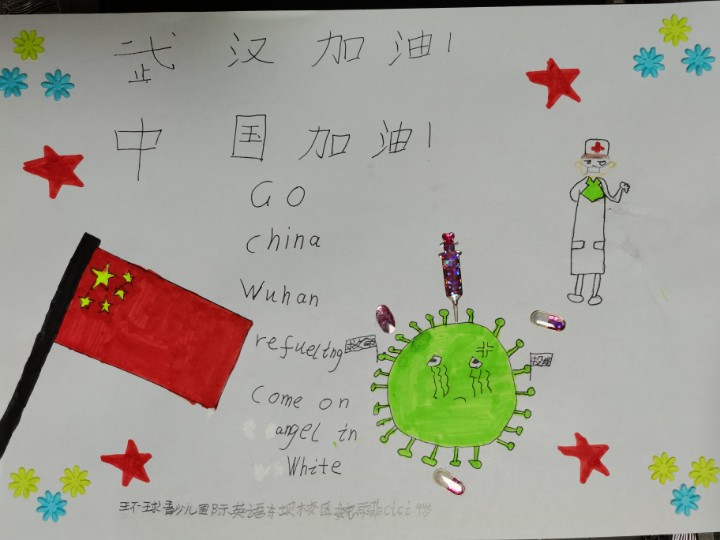 武汉加油!
中国加油!
GO
China
Wuhan
refueling
Come on
angel in
White
环球青少儿国际英语 校区 cici 9岁